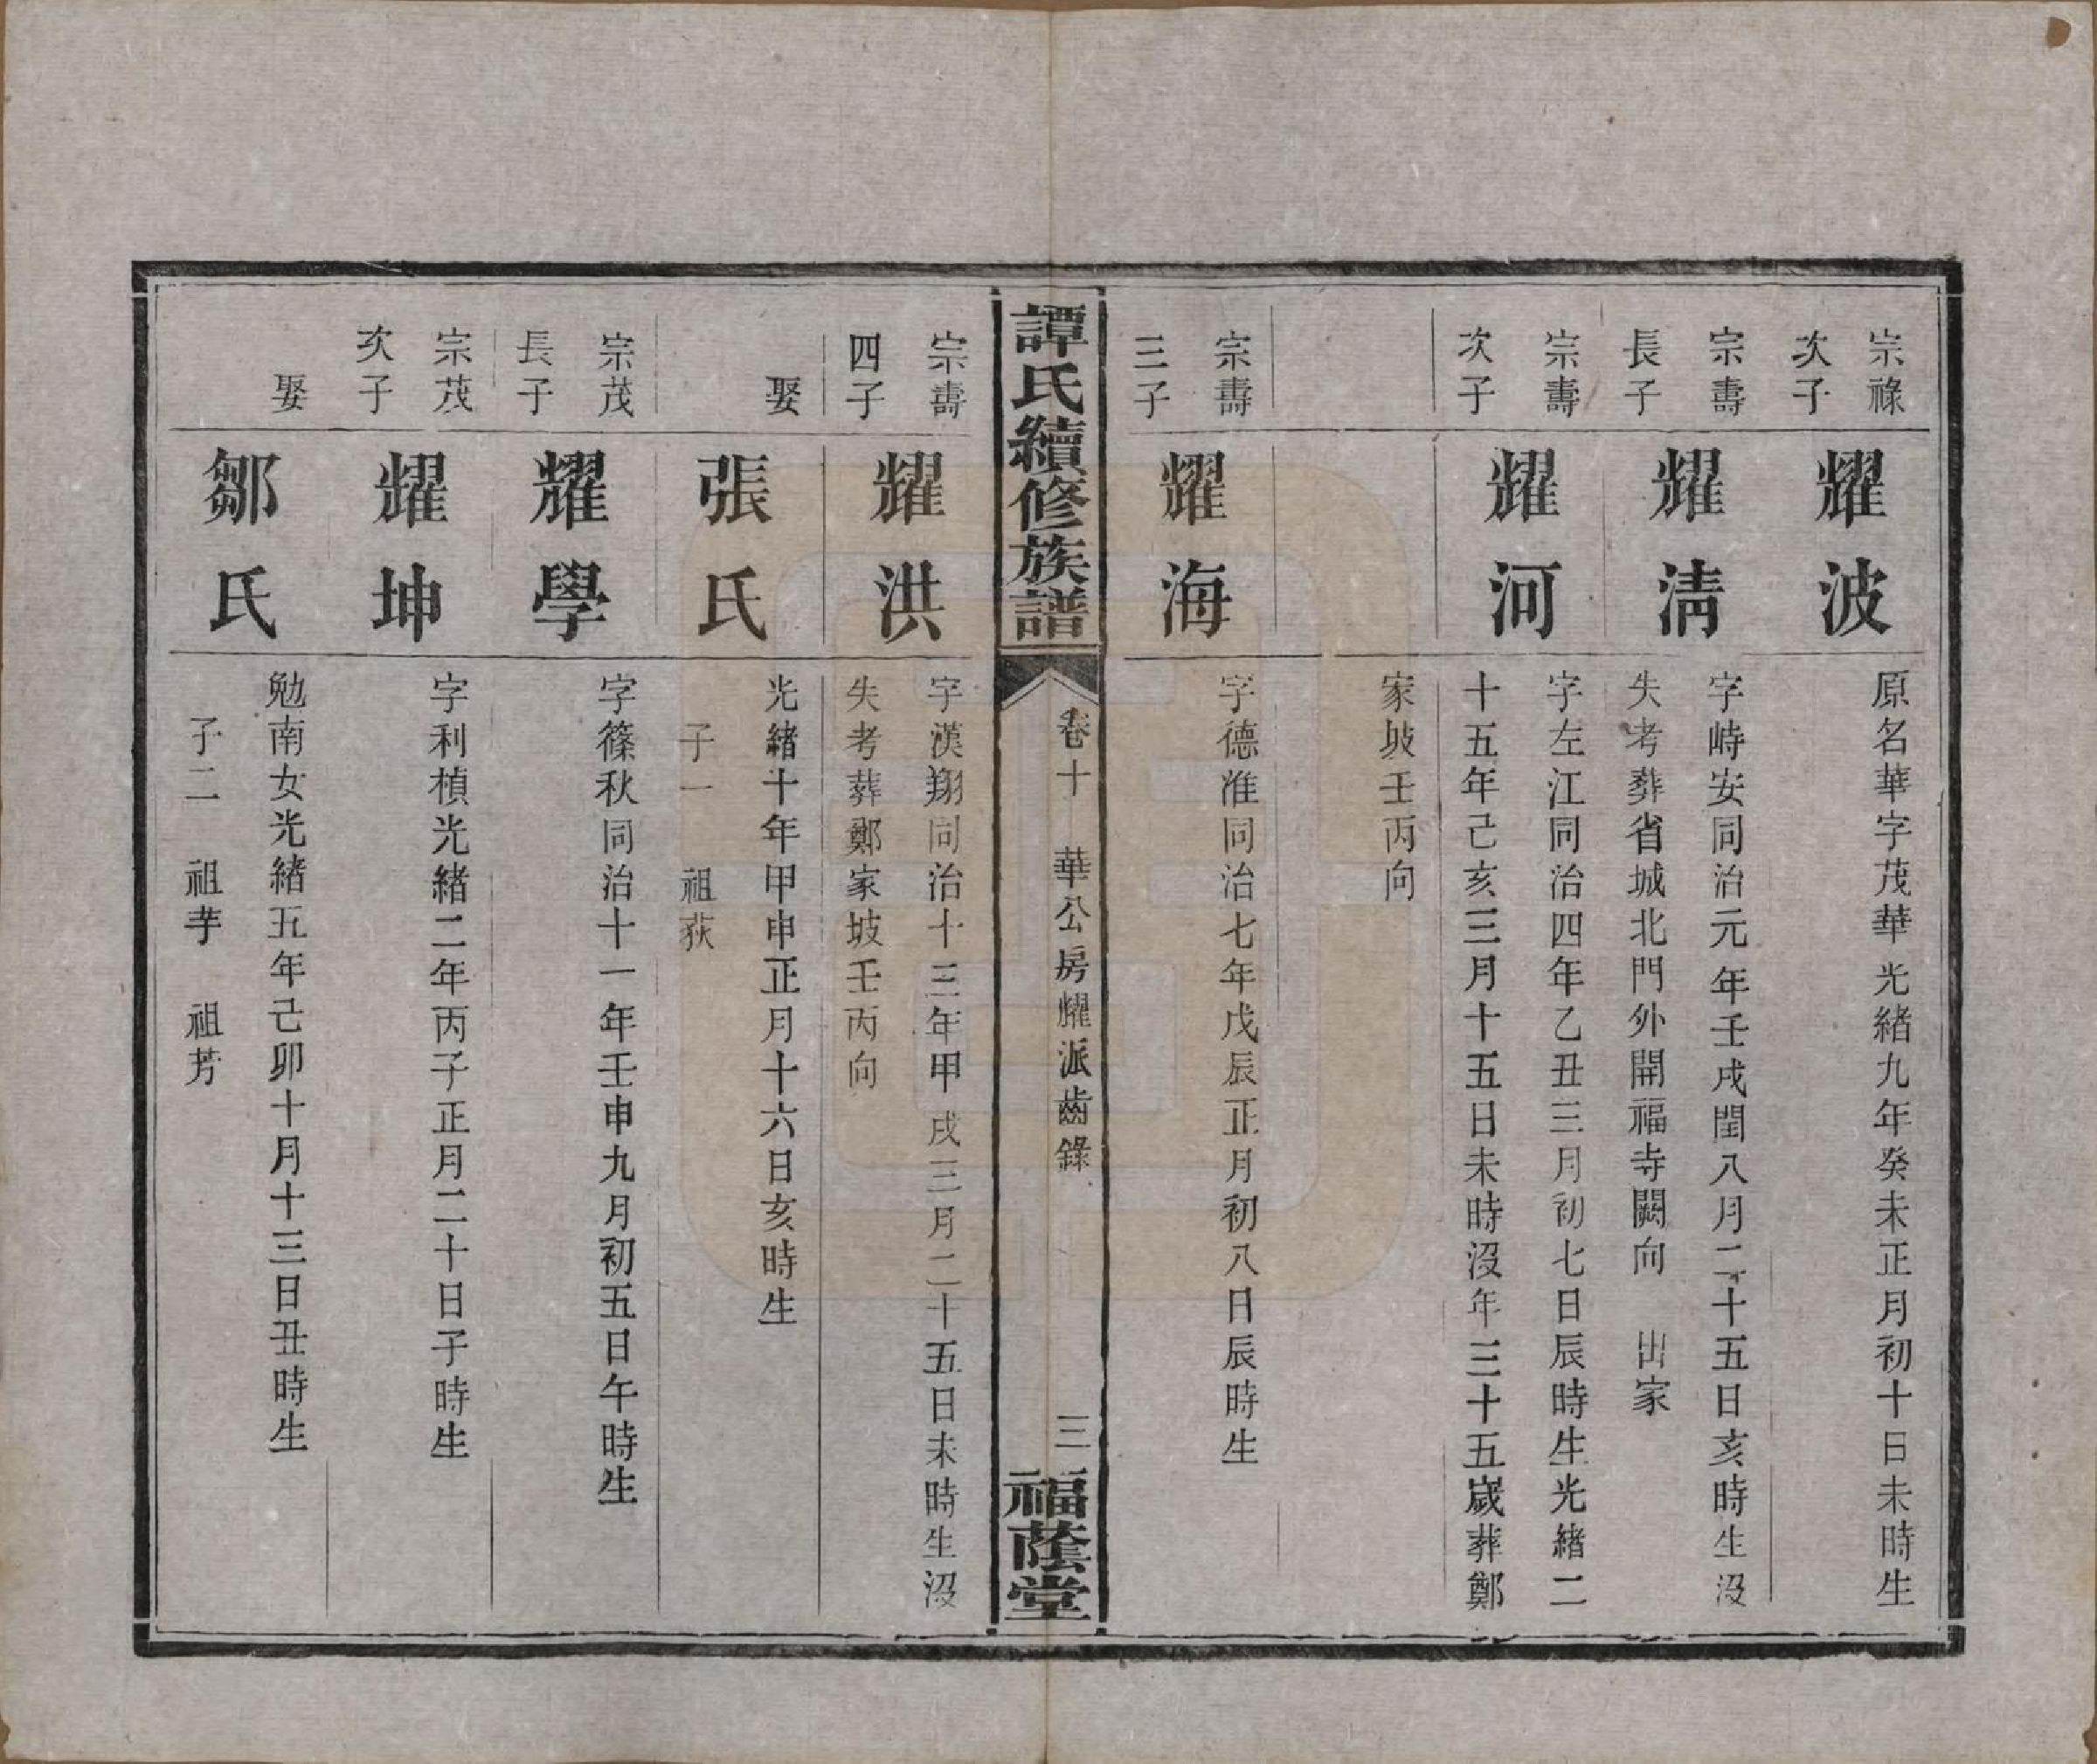 宗祿
次子
耀波
原名華字茂華光緒九年癸未正月初十日未時生
宗壽
長子
耀淸
字峙安同治元年壬戌閏八月二十五日亥時生沒
失考葬省城北門外開福寺闕向 出家
宗壽
次子
耀河
字左江同治四年乙丑三月初七日辰時生光緒二
十五年己亥三月十五日未時沒年三十五嵗葬鄭
家坡壬丙向
宗壽
三子
耀海
字德淮同治七年戊辰正月初八日辰時生
譚氏續修族譜
卷十 華公房耀派齒錄
三
福蔭堂
宗壽
四子
耀洪
字漢翔同治十三年甲戌三月二十五日未時生沒
失考葬鄭家坡壬丙向
娶
張氏
光緒十年甲申正月十六日亥時生
子一 祖荻
宗茂
長子
耀學
字篠秋同治十一年壬申九月初五日午時生
宗茂
次子
耀坤
字利楨光緒二年丙子正月二十日子時生
娶
鄒氏
勉南女光緒五年己卯十月十三日丑時生
子二 祖芋 祖芳